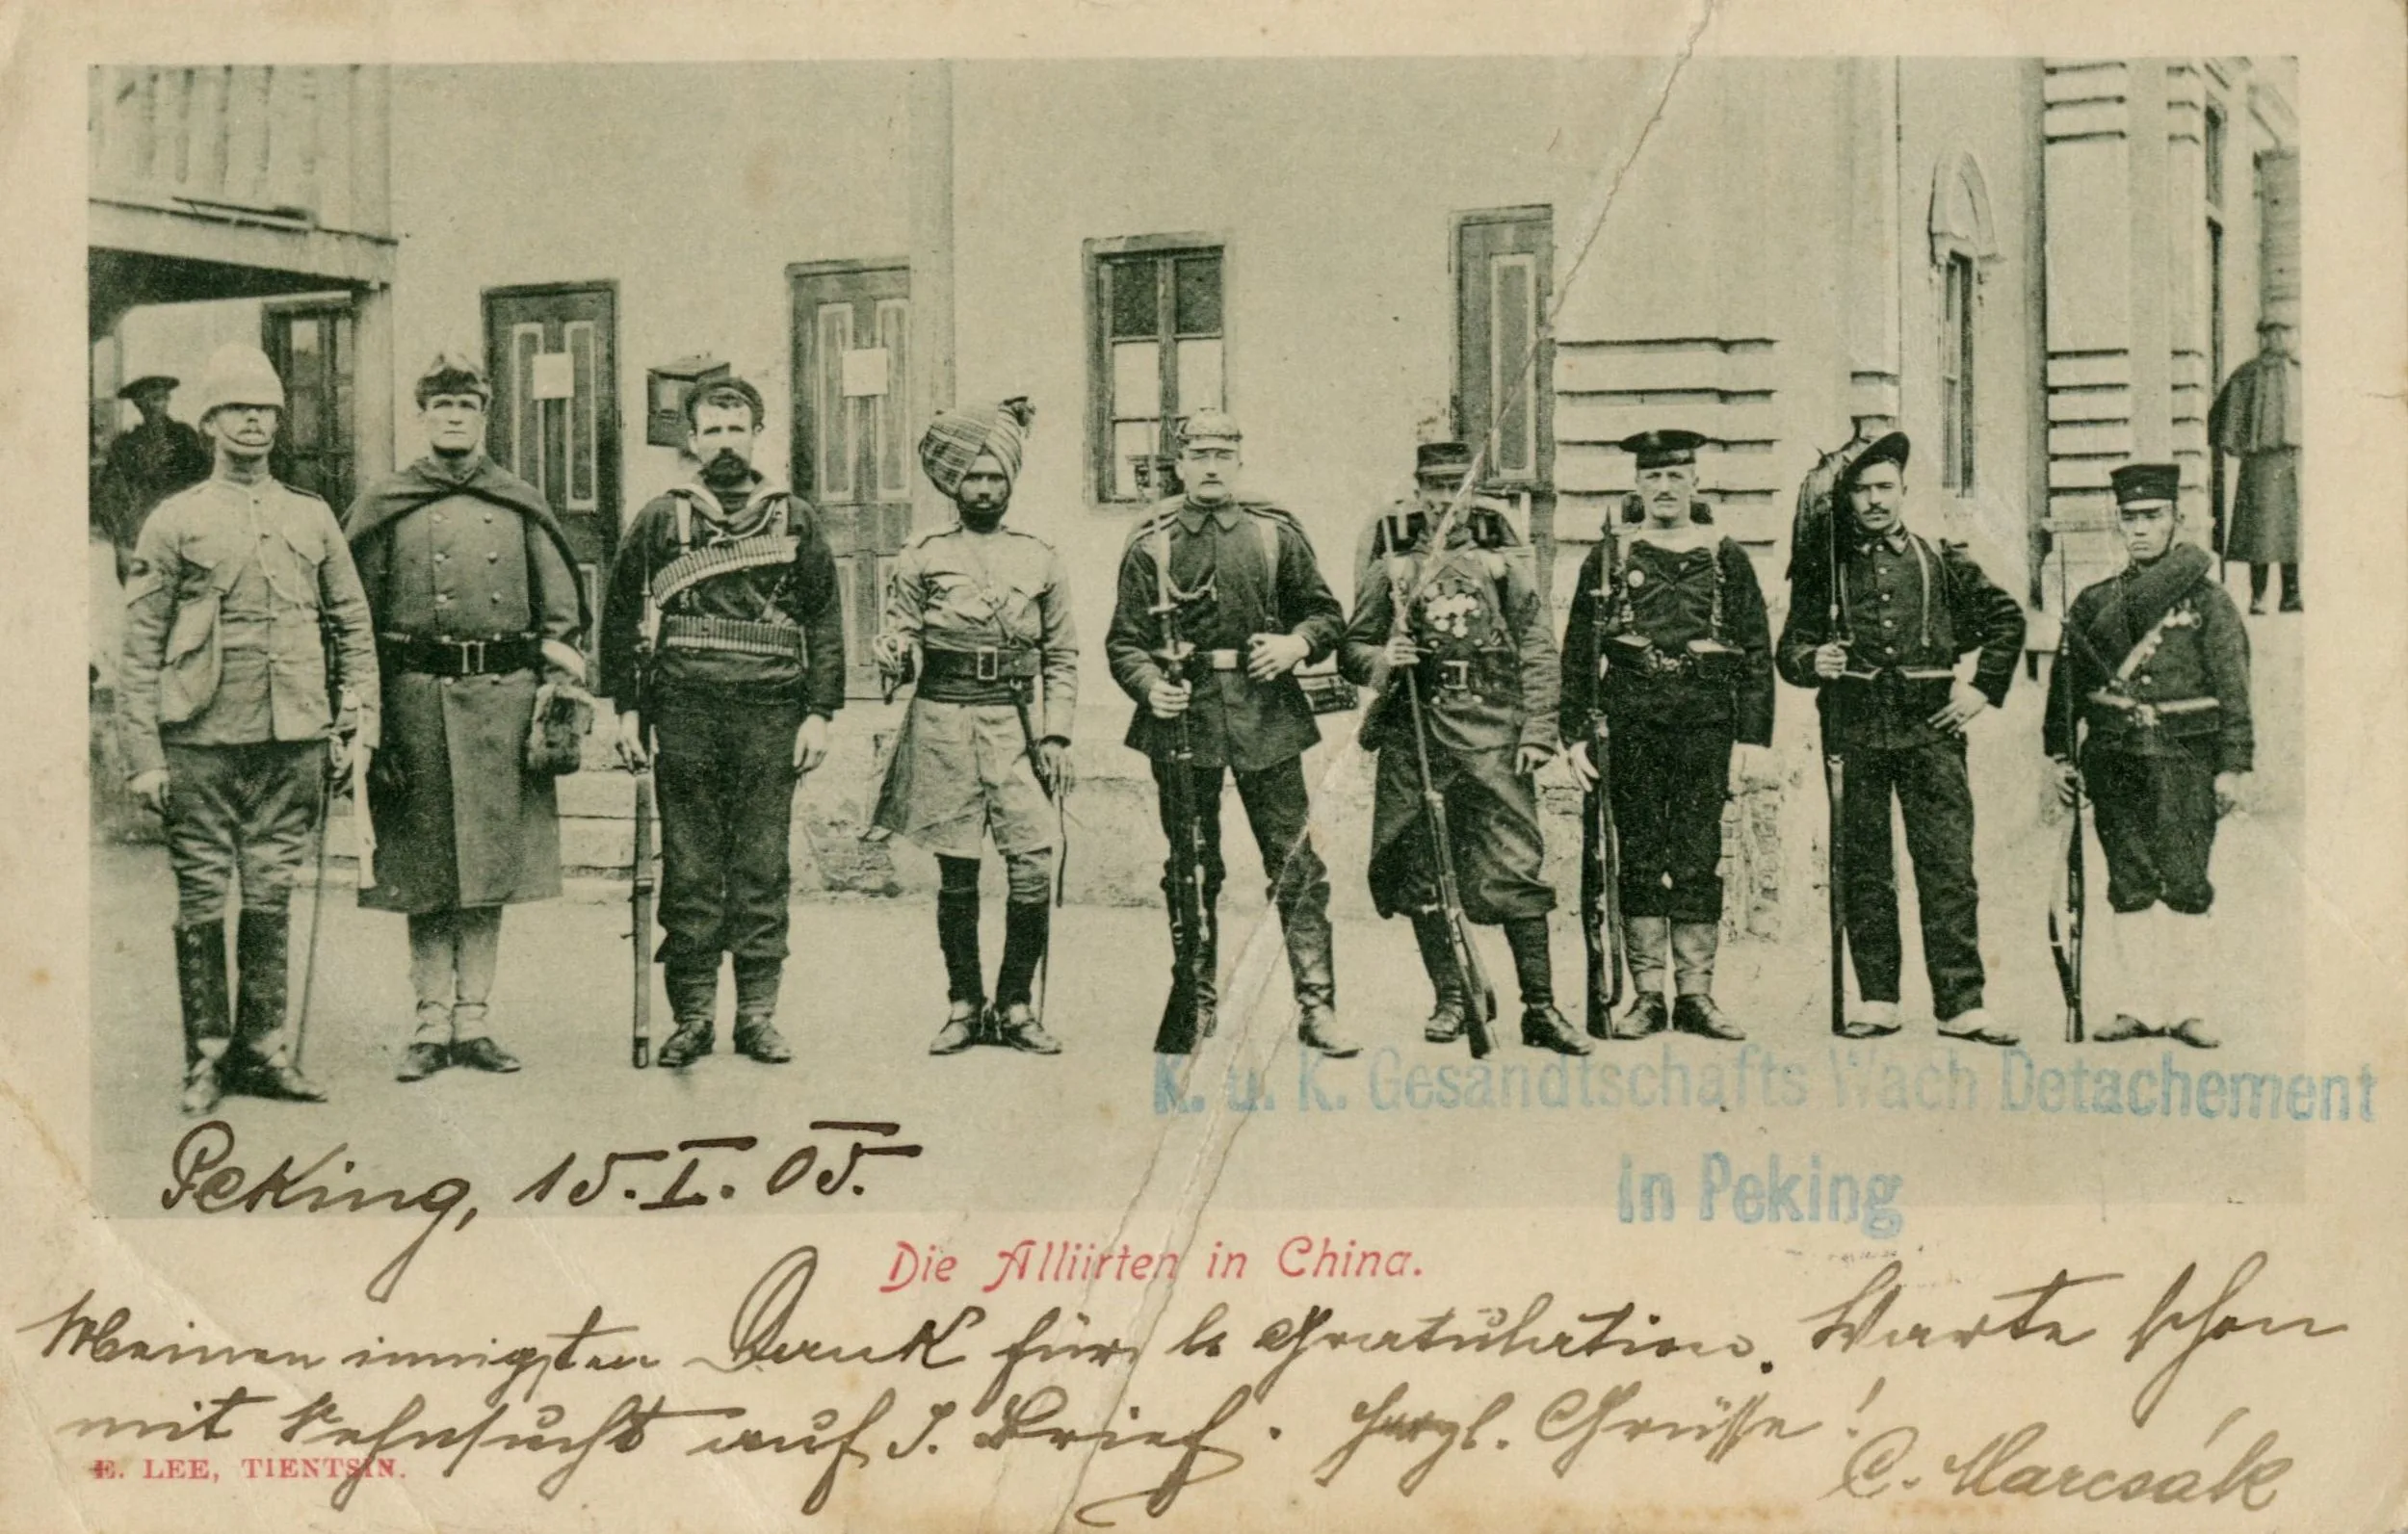 K. u. K. Gesandtschafts Wach Detachement
in Peking
Peking, 15. I. 05.
Die Alliirten in China.
Meinen innigsten Dank für l. Gratulation. Warte schon
mit Sehnsucht auf I. Brief. Herzl. Grüsse!
C. Marcsák
E. LEE, TIENTSIN.